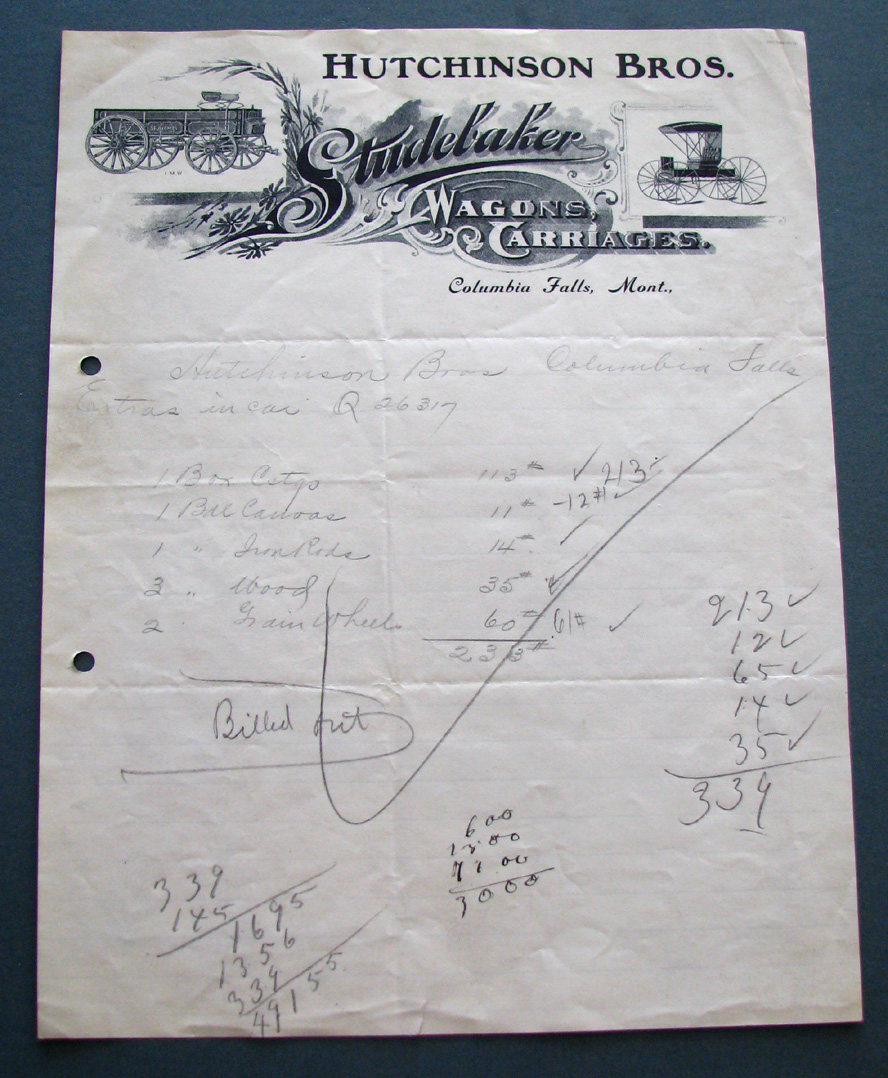 HUTCHINSON BROS.
Studebaker
WAGONS,
CARRIAGES.
Columbia Falls, Mont.,
Hutchinson Bros Columbia Falls
Extras in car Q 26317
1 Box Cstgs 113# ✓ 213
1 Bdl Canvas 11# -12# ✓
1 " Iron Rods 14# ✓
3 " Wood 35# ✓
2 Grain Wheels 60# 61# ✓
233#
Billed out
213 ✓
12 ✓
65 ✓
14 ✓
35 ✓
339
600
00
00
3000
339
145
1695
1356
339
49155